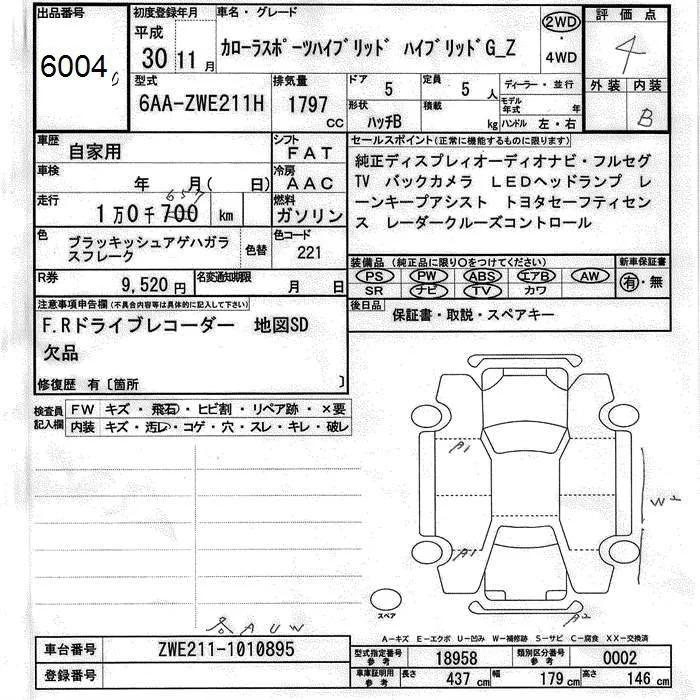 出品番号
6004
初度登録年月
平成
30 11月
車名・グレード
カローラスポーツハイブリッド ハイブリッドG_Z
2WD
・
4WD
評価点
4
外装 内装
B
型式
6AA-ZWE211H
排気量
1797
CC
ドア
5
定員
5 人
形状
ハッチB
積載
kg
ディーラー・並行
モデル年式 年
ハンドル 左・右
車歴
自家用
シフト
FAT
車検
年 月( 日)
冷房
AAC
走行
657
1万0千700 km
燃料
ガソリン
色
ブラッキッシュアゲハガラ
スフレーク
色替
色コード
221
R券
9,520円
名変通知期限
月 日
セールスポイント(正常に機能するものに限ります)
純正ディスプレィオーディオナビ・フルセグ
TV バックカメラ LEDヘッドランプ レ
ーンキープアシスト トヨタセーフティセン
ス レーダークルーズコントロール
装備品 (純正品に限り○をつけてください)
新車保証書
PS PW ABS エアB AW
有・無
SR ナビ TV カワ
後日品
保証書・取説・スペアキー
注意事項申告欄(不具合内容等は具体的に記入して下さい)
F.Rドライブレコーダー 地図SD
欠品
修復歴 有〔箇所 〕
検査員
記入欄
FW キズ・飛石・ヒビ割・リペア跡・×要
内装 キズ・汚レ・コゲ・穴・スレ・キレ・破レ
A1
A1
W2
A2
スペア
AUW
A-キズ E-エクボ U-凹み W-補修跡 S-サビ C-腐食 XX-交換済
車台番号
ZWE211-1010895
登録番号
型式指定番号
参考
18958
類別区分番号
参考
0002
車庫証明用
参考
長さ 437 cm
幅 179 cm
高さ 146 cm